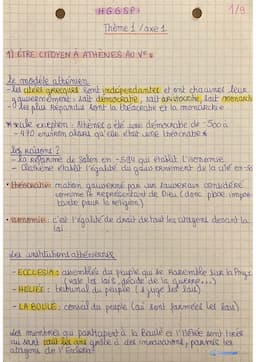 HGGSP 1/9
Thème 1 / axe 1
1) ÊTRE CITOYEN À ATHÈNES AU Ve s
Le modèle athénien
- les cités grecques sont indépendantes et ont chacune leur
gouvernement : soit démocratie, soit soit monarch
- les plus répandus sont la théocratie et la monarchie
Athènes a été une démocratie de -500 à
théocratie
les raisons ?
- La réforme de Solon en -594 qui établit l'isonomie
- Clisthène établit l'égalité du gouvernement de la cité en
théocratie : nation gouvernée par un souverain considéré
comme représentant de Dieu (donc place impor-
tante pour la religion)
isonomie : c'est l'égalité de droit de tout les citoyens devant la
loi
Les institutions athéniennes
- ECCLESIA : assemblée du peuple qui se rassemble sur la Pnyx
(vote les lois, décide de la guerre...)
- HÉLIÉE : tribunal du peuple (juge les lois)
- LA BOULÈ : conseil du peuple (où sont formées les lois)
Les membres qui participent à la Boulè et l'Héliée sont tirés
au sort tous les ans grâce à des parmis les
citoyens de l'Ecclesia